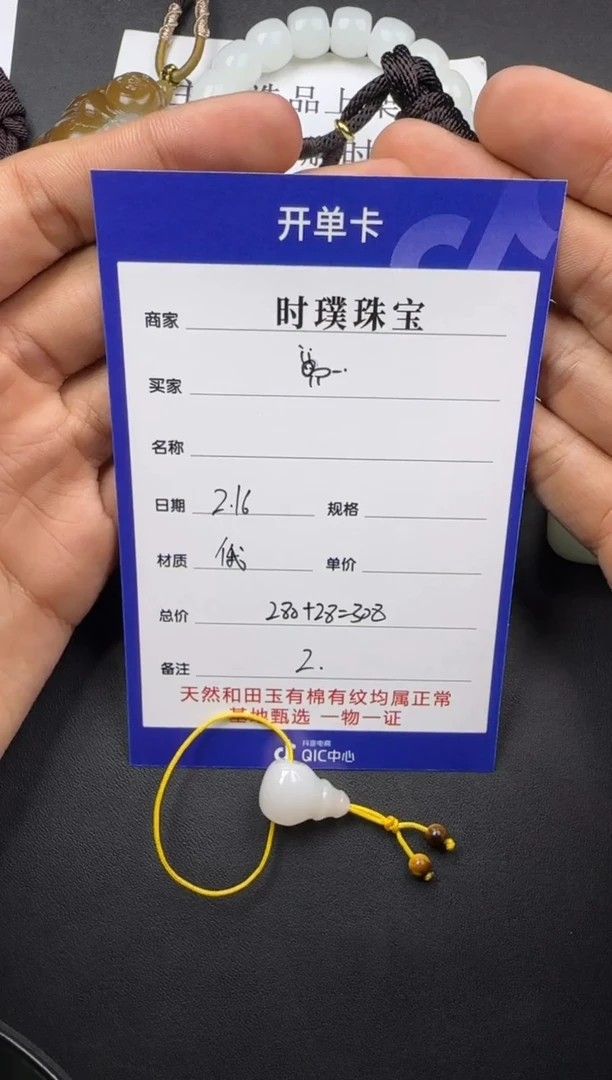 选品上架
时
开单卡
商家 时璞珠宝
买家
名称
日期 2.16 规格
材质 俄 单价
总价 280+28=308
备注 2.
天然和田玉有棉有纹均属正常
基地甄选 一物一证
抖音电商
QIC中心